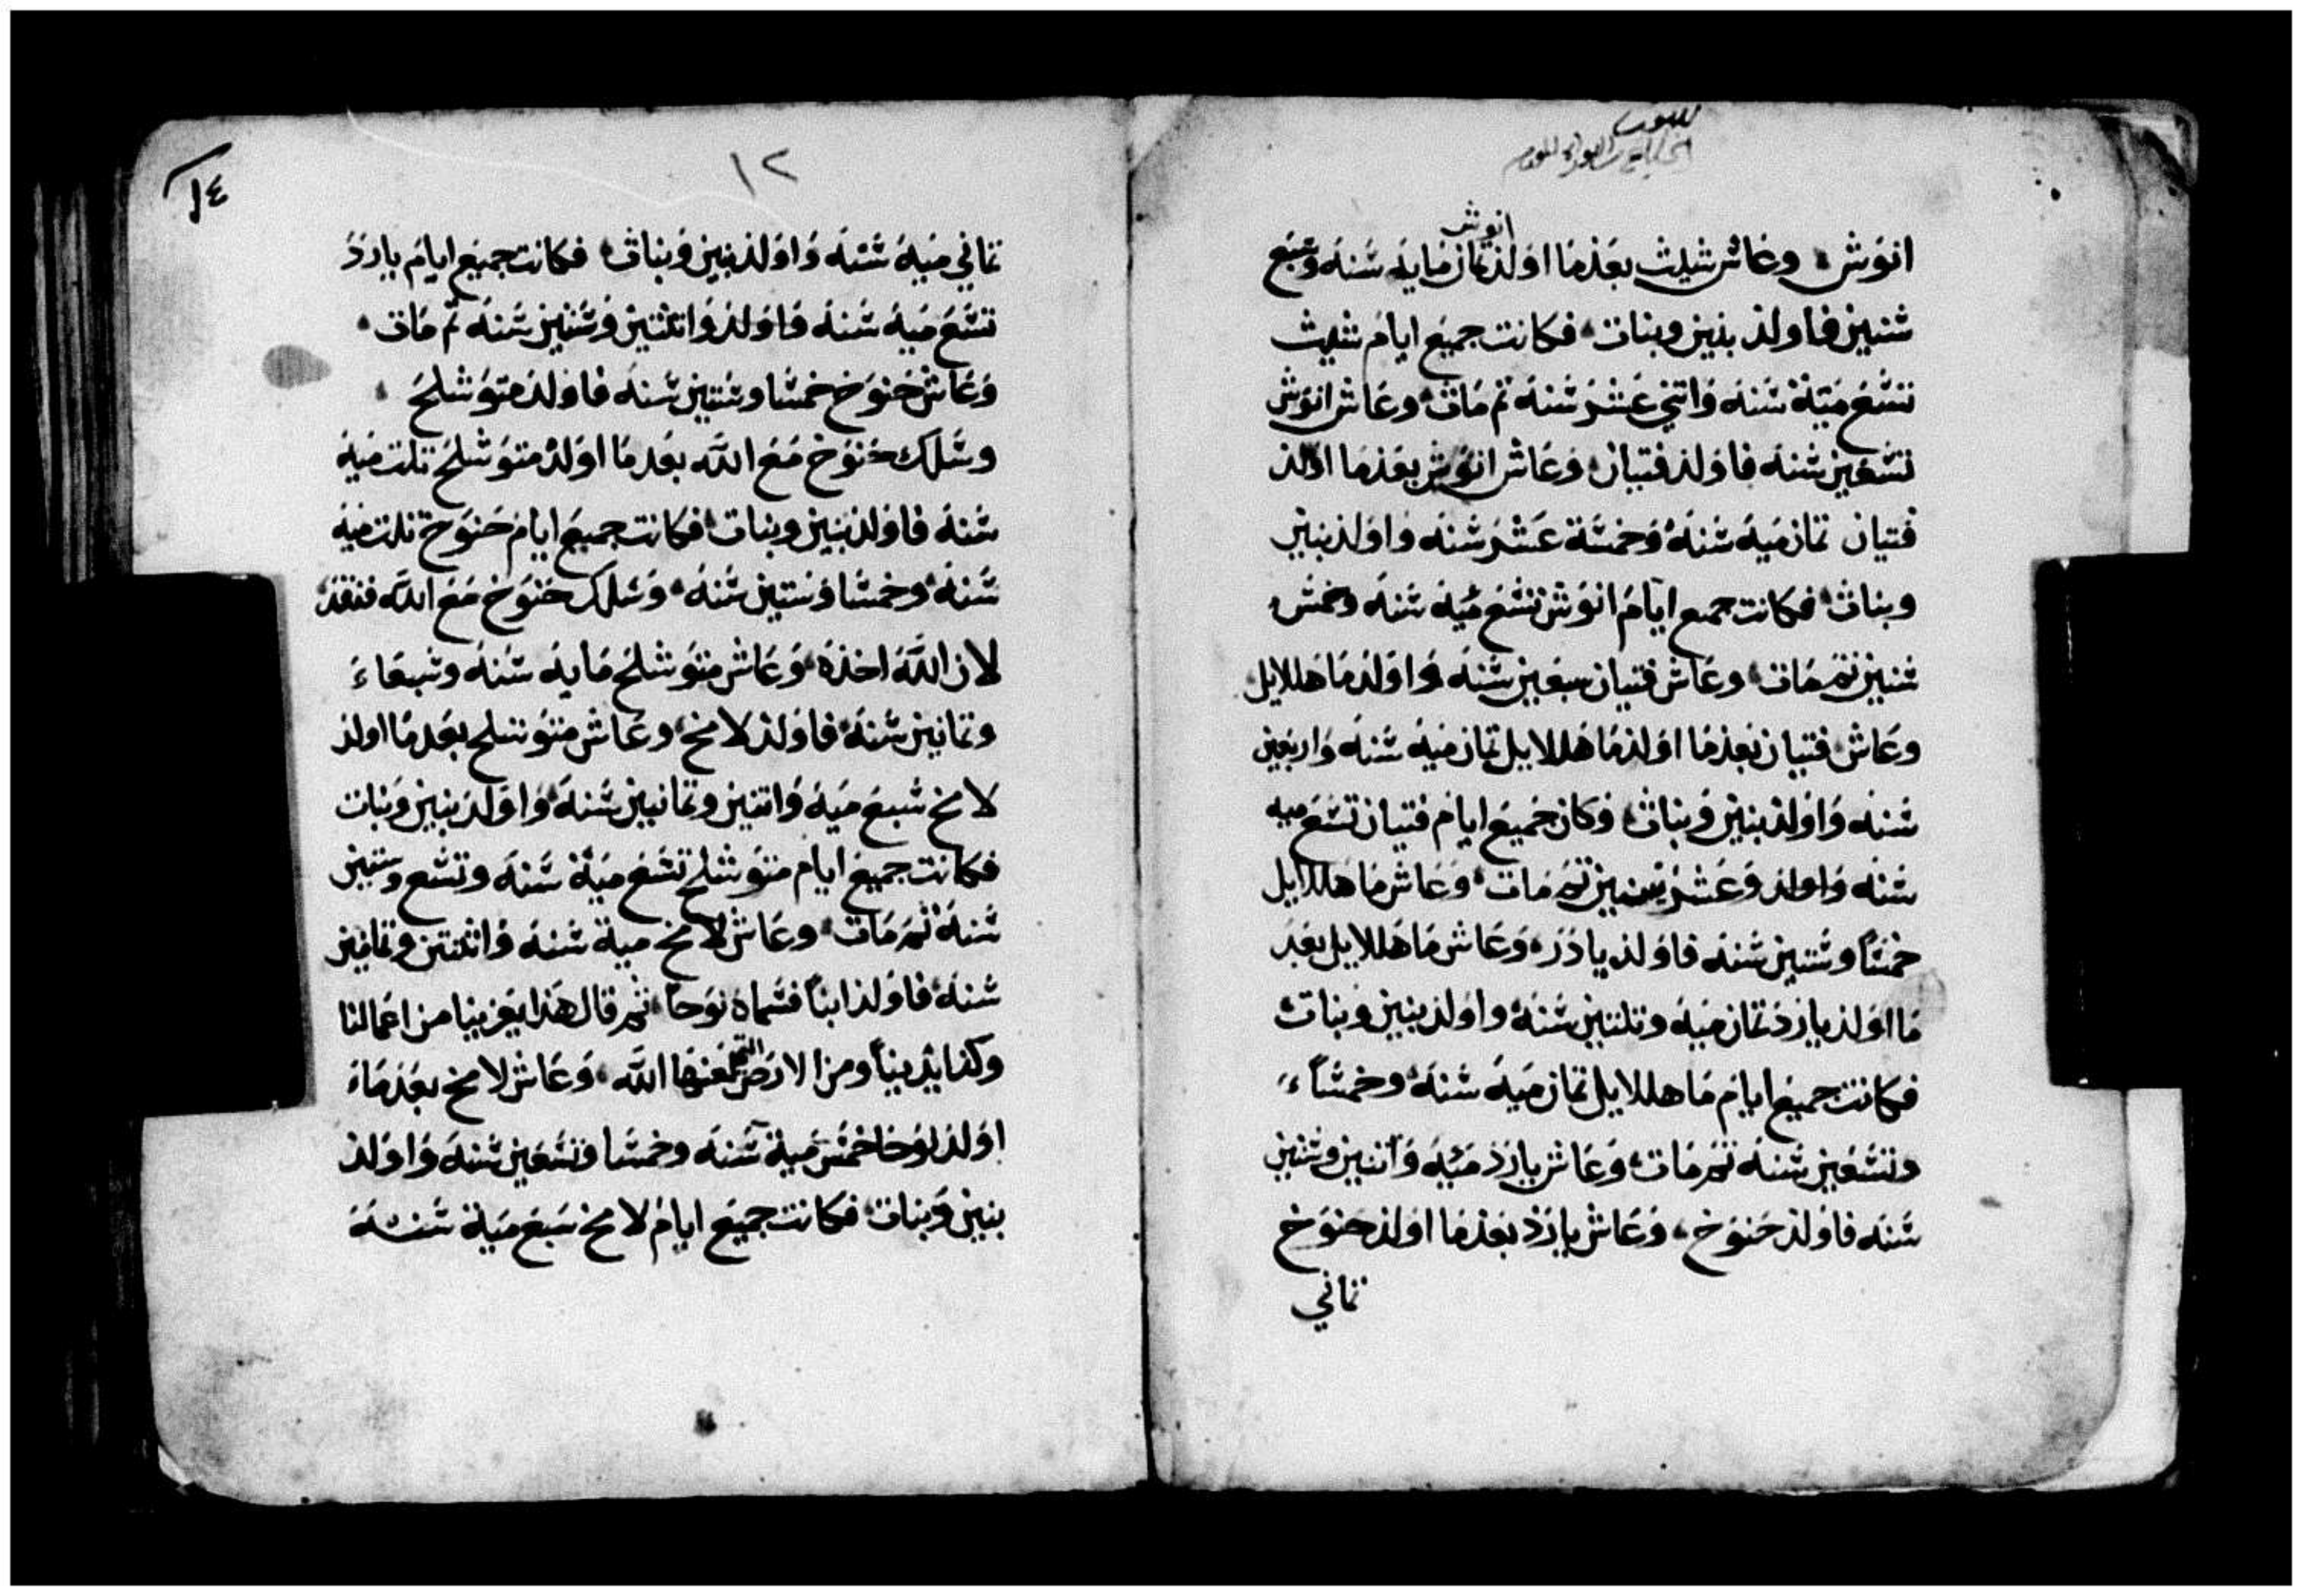 انوش
انوش وعاش شيث بعدما اولد ثمان مايه سنه وسبع
سنين فاولد بنين وبنات فكانت جميع ايام شيث
تسع مية سنه واتني عشر سنه تم مات وعاش انوش
تسعين سنه فاولد فتيان وعاش انوش بعدما اولد
فتيان تمان ميه سنه وخمسة عشر سنه واولد بنين
وبنات فكانت جميع ايام انوش تسع ميه سنه وخمس
سنين تم مات وعاش فتيان سبعين سنه واولد ماهللايل
وعاش فتيان بعدما اولد ماهللايل تمان ميه سنه واربعين
سنه واولد بنين وبنات فكان جميع ايام فتيان تسع ميه
سنه واولد وعشر سنين تم مات وعاش ماهللايل
خمسًا وستين سنه فاولد يارد وعاش ماهللايل بعد
ما اولد يارد تمان ميه وتلتين سنه واولد بنين وبنات
فكانت جميع ايام ماهللايل تمان ميه سنه وخمسًا
وتسعين سنه تم مات وعاش يارد ميه واتنين وستين
سنه فاولد حنوخ وعاش يارد بعدما اولد حنوخ
تماني
١٢
١٤
تماني ميه سنه واولد بنين وبنات فكانت جميع ايام يارد
تسع ميه سنه واولد واتنتين وستين سنه تم مات
وعاش حنوخ خمسا وستين سنه فاولد متوشلح
وسلك حنوخ مع الله بعدما اولد متوشلح تلت ميه
سنه فاولد بنين وبنات فكانت جميع ايام حنوخ تلت ميه
سنه وخمسا وستين سنه وسلك حنوخ مع الله ففقد
لان الله اخذه وعاش متوشلح مايه سنه وسبعا
وتمانين سنه فاولد لامخ وعاش متوشلح بعدما اولد
لامخ سبع ميه واتنين وتمانين سنه واولد بنين وبنات
فكانت جميع ايام متوشلح تسع مية سنه وتسع وستين
سنه تم مات وعاش لامخ مية سنه واثنتين وتمانين
سنه فاولد ابنًا فسماه نوحًا ثم قال هذا يعزينا من اعمالنا
وكد ايدينا ومن الارض التي لعنها الله وعاش لامخ بعدما
اولد نوحا خمس مية سنه وخمسا وتسعين سنه واولد
بنين وبنات فكانت جميع ايام لامخ سبع مية سنه